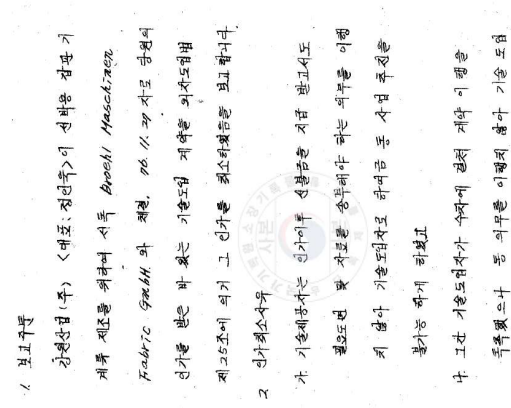 1. 보고주문
강원산업(주) <대표: 정인욱>이 선박용 갑판 기
계류 제조를 위하여 서독 Broehl Maschinen
Fabric GmbH 와 체결, 76. 11. 29 자로 당원의
인가를 받은 바 있는 기술도입 계약을 외자도입법
제25조에 의거 그 인가를 취소하였음을 보고합니다.
2. 인가취소사유
가. 기술제공자는 인가이후 선불금을 지급 받고서도
필요도면 및 자료를 송부해야 하는 의무를 이행
치 않아 기술도입자로 하여금 동 사업 추진을
불가능 하게 하였고
나. 그간 기술도입자가 수차에 걸쳐 계약 이행을
촉구했으나 동 의무를 이행치 않아 기술 도입
사본